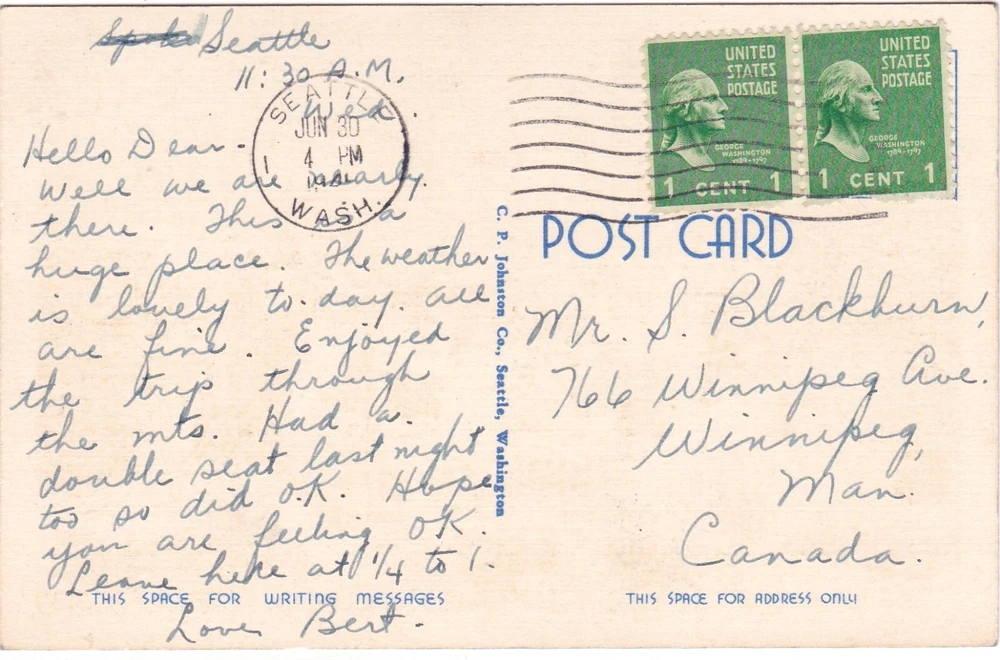 Seattle
11:30 A.M.
Wed.
Hello Dear.
Well we are nearly
there. This a
huge place. The weather
is lovely to-day. All
are fine. Enjoyed
the trip through
the mts. Had a
double seat last night
too so did O.K. Hope
you are feeling OK.
Leave here at 1/4 to 1.
THIS SPACE FOR WRITING MESSAGES
Love Bert.
SEATTLE
JUN 30
4 PM
WASH.
1
C. P. Johnston Co., Seattle, Washington
UNITED
STATES
POSTAGE
GEORGE
WASHINGTON
1789-1797
1 CENT 1
UNITED
STATES
POSTAGE
GEORGE
WASHINGTON
1789-1797
1 CENT 1
POST CARD
Mr. S. Blackburn,
766 Winnipeg Ave.
Winnipeg,
Man.
Canada.
THIS SPACE FOR ADDRESS ONLY